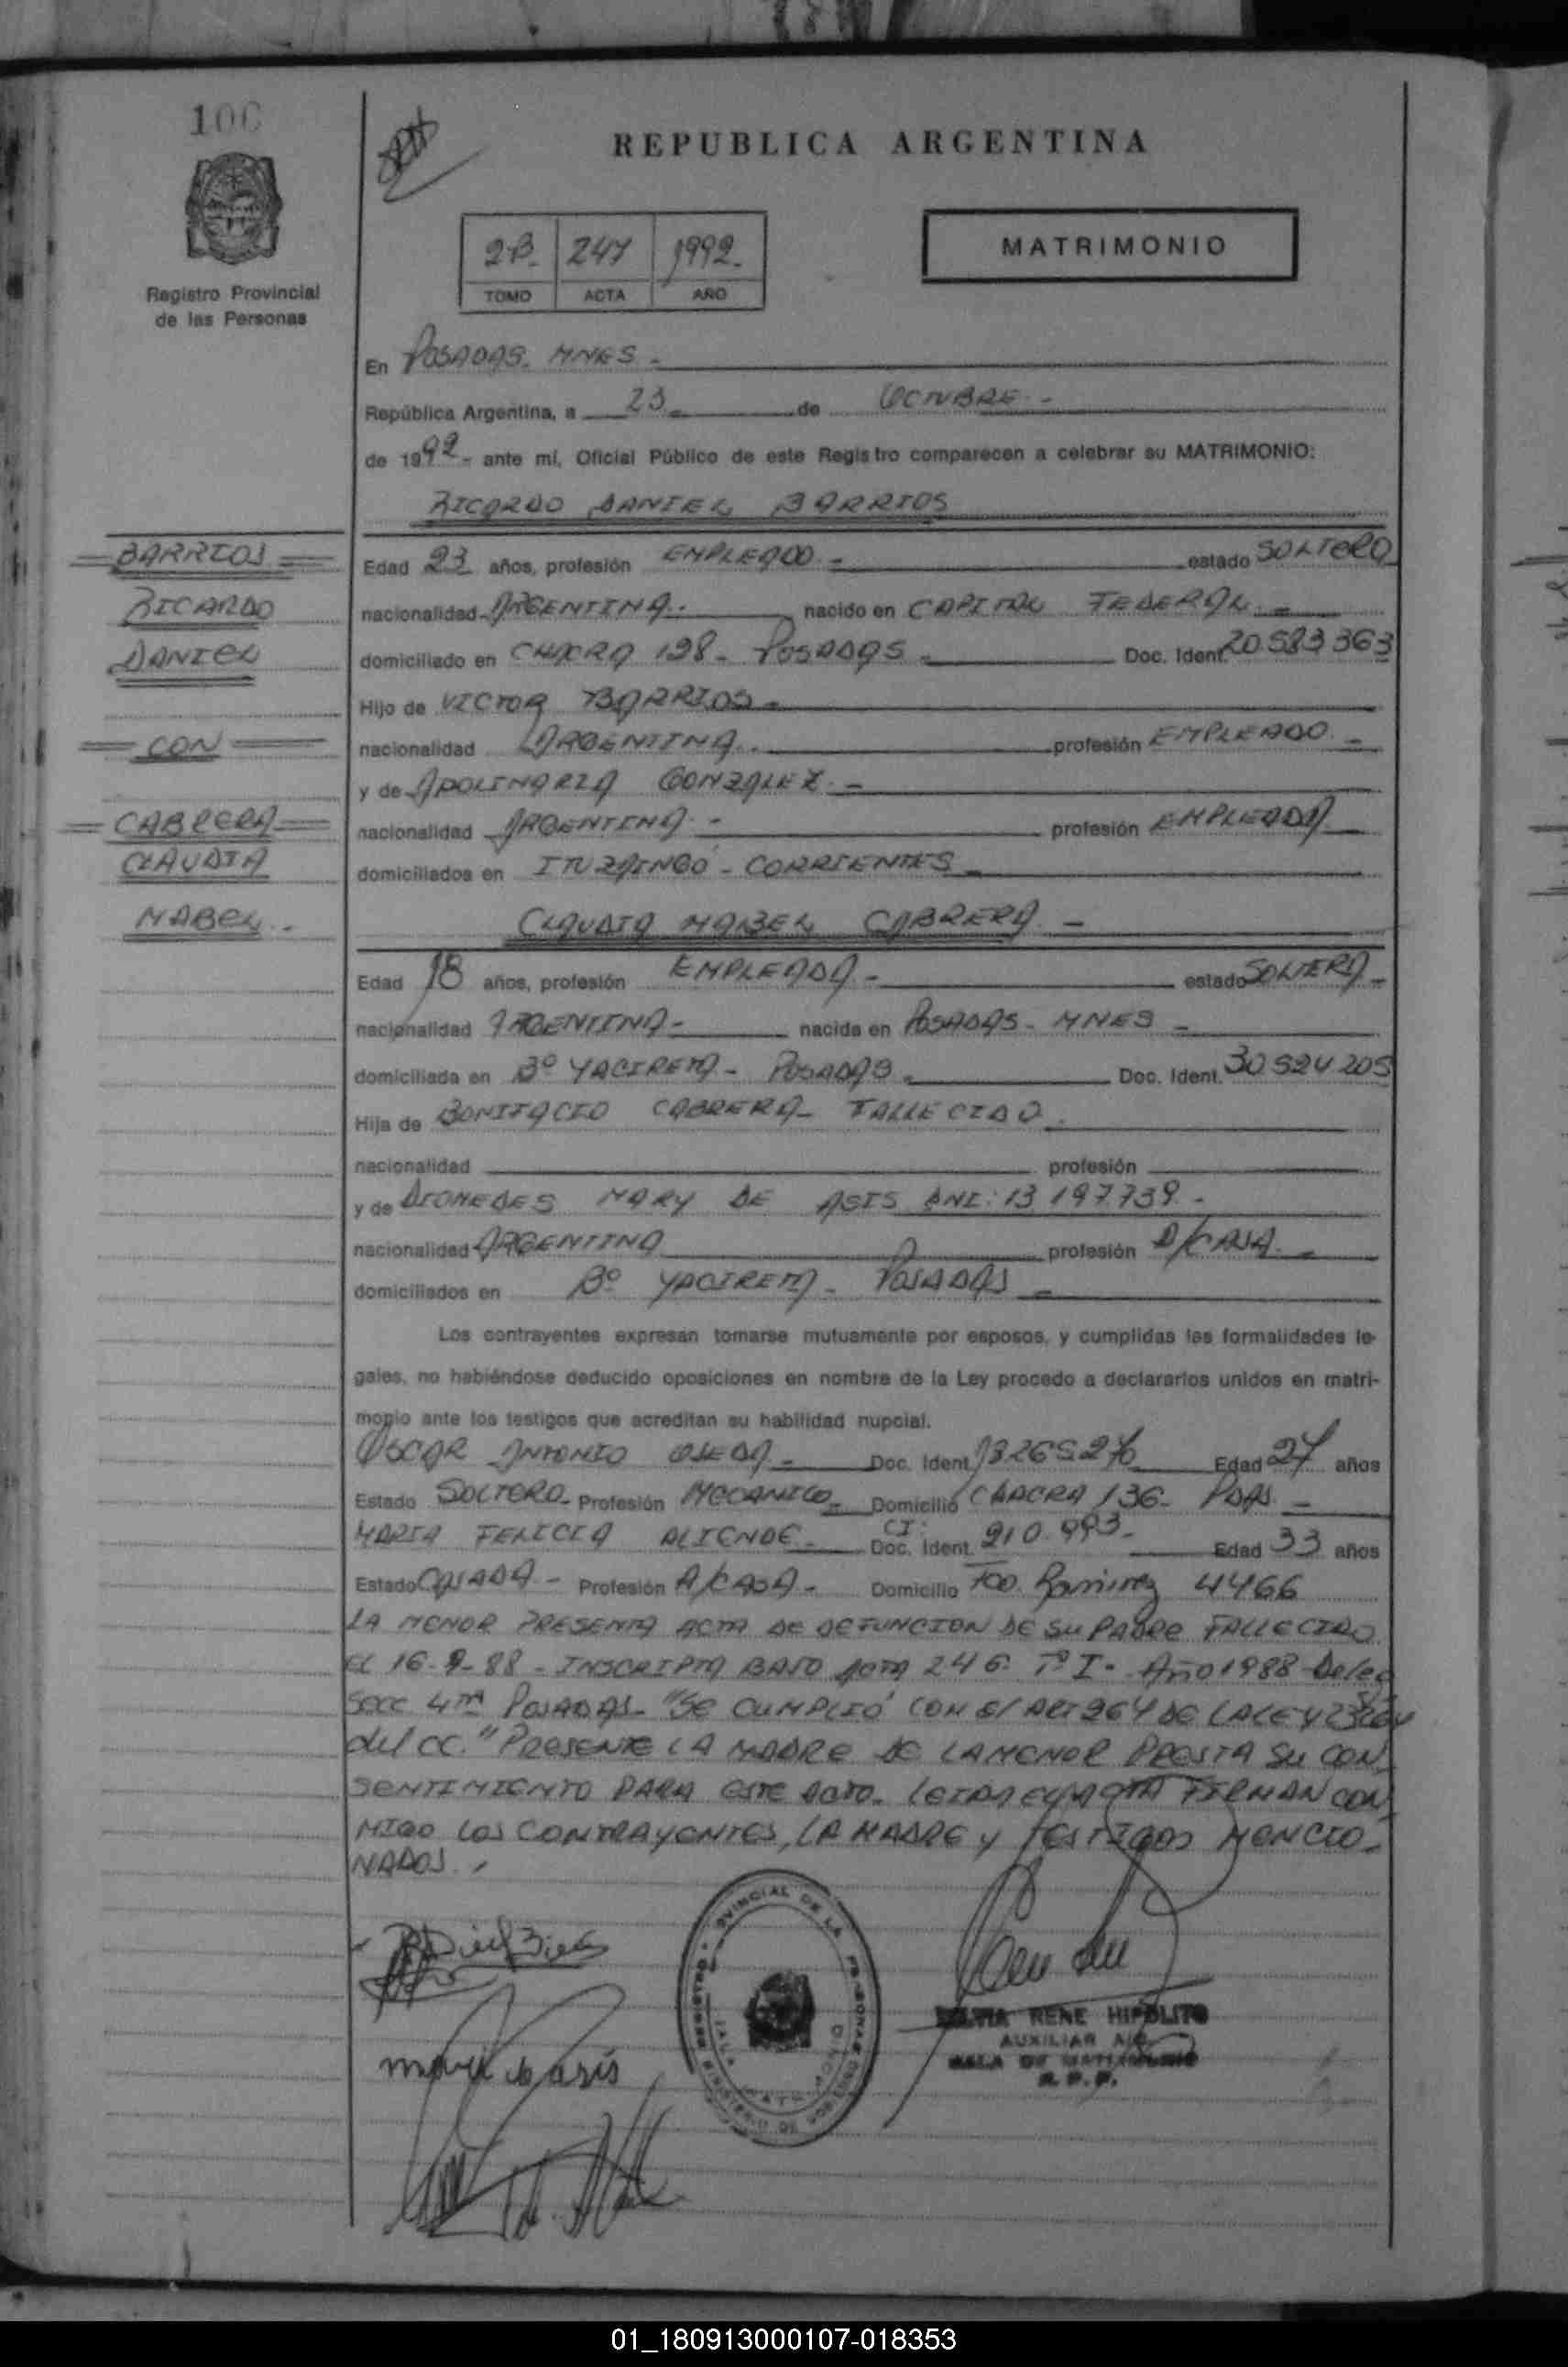 100
REPUBLICA ARGENTINA
2-B. 247 1992.
TOMO ACTA AÑO
MATRIMONIO
Registro Provincial
de las Personas
En POSADAS. MNES -
República Argentina, a 23 de OCTUBRE -
de 1992 - ante mí, Oficial Público de este Registro comparecen a celebrar su MATRIMONIO:
RICARDO DANIEL BARRIOS
BARRIOS
RICARDO
DANIEL
CON
CABRERA
CLAUDIA
MABEL -
Edad 23 años, profesión EMPLEADO - estado SOLTERO
nacionalidad ARGENTINA. nacido en CAPITAL FEDERAL -
domiciliado en CHACRA 198 - POSADAS - Doc. Ident. 20.583 363
Hijo de VICTOR BARRIOS -
nacionalidad ARGENTINA. profesión EMPLEADO -
y de APOLINARIA GONZALEZ. -
nacionalidad ARGENTINA - profesión EMPLEADA
domiciliados en ITUZAINGÓ - CORRIENTES -
CLAUDIA MABEL CABRERA. -
Edad 18 años, profesión EMPLEADA - estado SOLTERA -
nacionalidad ARGENTINA - nacida en POSADAS - MNES -
domiciliada en Bº YACIRETA - POSADAS - Doc. Ident. 30 524 205
Hija de BONIFACIO CABRERA - FALLECIDO.
nacionalidad profesión
y de DIOMEDES MARY DE ASIS DNI: 13 197.739 -
nacionalidad ARGENTINA profesión A/CASA. -
domiciliados en Bº YACIRETA - POSADAS -
Los contrayentes expresan tomarse mutuamente por esposos, y cumplidas las formalidades le-
gales, no habiéndose deducido oposiciones en nombre de la Ley procedo a declararlos unidos en matri-
monio ante los testigos que acreditan su habilidad nupcial.
OSCAR ANTONIO OJEDA - Doc. Ident. Edad 27 años
Estado SOLTERO - Profesión MECANICO - Domicilio CHACRA 136 - PDAS. -
MARIA FELICIA ALIENDE - CI: Doc. Ident. 210.993 - Edad 33 años
Estado CASADA - Profesión A/CASA - Domicilio Fco. Ramirez 4466
LA MENOR PRESENTA ACTA DE DEFUNCION DE SU PADRE FALLECIDO
EL 16-9-88 - INSCRIPTA BAJO ACTA 246 Tº I - Año 1988 - Deleg
Secc 4ta POSADAS - "SE CUMPLIÓ CON El ART 264 DE LA LEY 23264
del CC." PRESENTE LA MADRE DE LA MENOR PRESTA SU CON
SENTIMIENTO PARA ESTE ACTO. FIRMAN CON
MIGO LOS CONTRAYENTES, LA MADRE y TESTIGOS MENCIO-
NADOS.
mary de asis
RENE HIPOLITO
AUXILIAR
SALA DE MATRIMONIO
R. P. P.
01_180913000107-018353